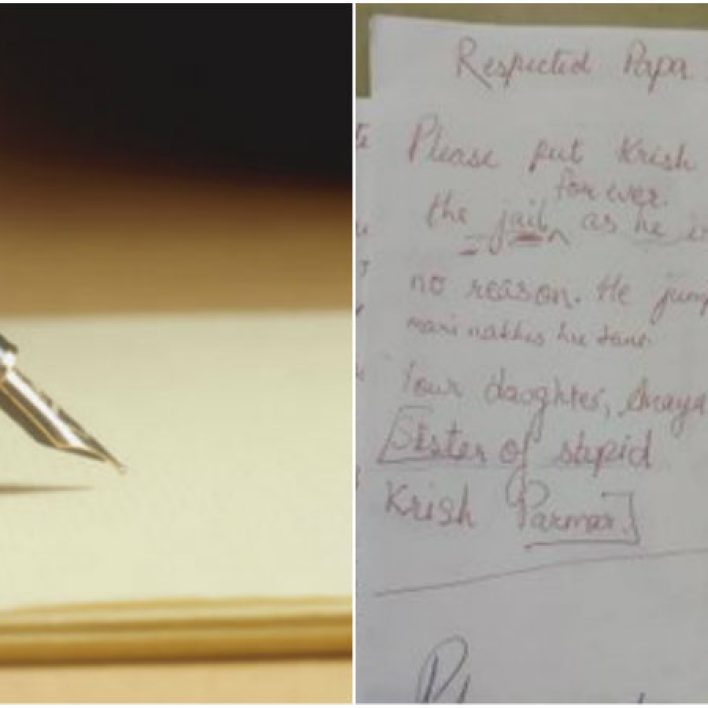 Respected Papa
Please put Krish
for ever.
the jail as he
no reason. He jump
mari nakhis hu tane
Your daughter,
Sister of stupid
Krish Parmar.